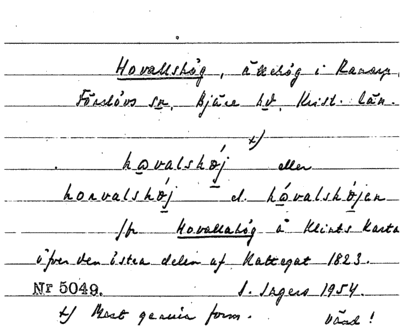 Hovallshög, ättehög i Ranarp,
Förslövs sn, Bjäre hd, Krist. län.
x)
hωvalshøj eller
horvalshøj el. hǻvalshøjen
jfr Hovallahög å Klints karta
öfver den östra delen af Kattegat 1823.
Nr 5049. S. Ingers 1954.
x) Mest genuin form. vård!